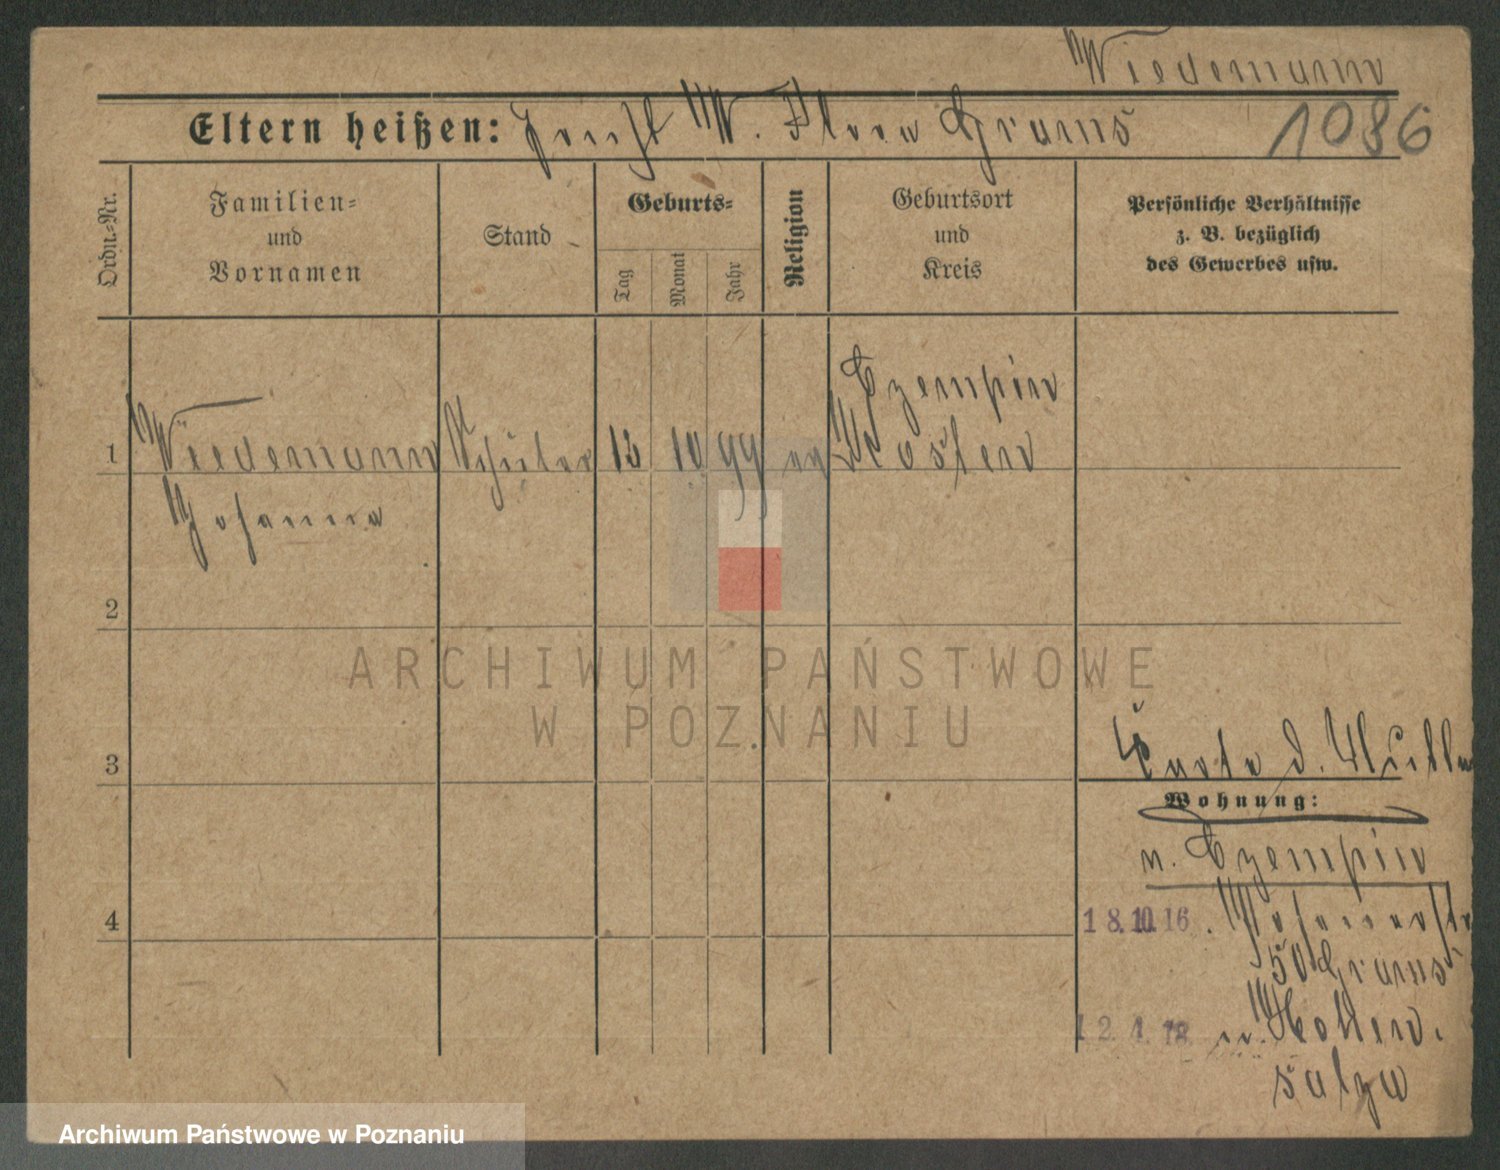 Wiedemann
Eltern heißen: W. Flora Grams 1086
Ordn.-Nr.
Familien-
und
Vornamen
Stand
Geburts-
Tag
Monat
Jahr
Religion
Geburtsort
und
Kreis
Persönliche Verhältnisse
z. B. bezüglich
des Gewerbes usw.
Czempin
1 Wiedemann Schüler 13 10 99 ev Kosten
Johanna
2
ARCHIWUM PAŃSTWOWE
W POZNANIU
3
Karte d. Mutter
Wohnung:
v. Czempin
4
18.10.16. Posenerstr
50 Grams
12.4.18. n. Hohen-
salza
Archiwum Państwowe w Poznaniu